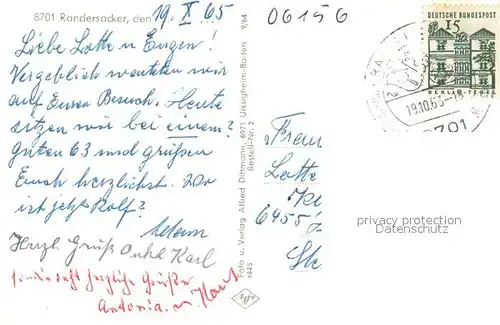 8701 Randersacker, den 19. X 65
Liebe Lotte u Eugen!
Vergeblich warteten wir
auf Euren Besuch. Heute
sitzen wir bei einem
guten 63 und grüßen
Euch herzlichst. Wo
ist jetzt Rolf?
Herzl. Gruß Onkel Karl
herzliche Grüße
Antonia. u. Karl
9/64
Foto u. Verlag Alfred Dittmann, 6971 Uissigheim-Baden
Bestell-Nr. 2
r445
06156
DEUTSCHE BUNDESPOST
15
BERLIN-TEGEL
19.10.65-18
8701
Lotte
6455
privacy protection
Datenschutz